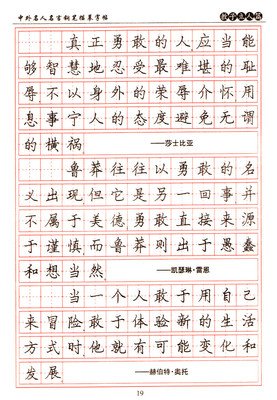 中外名人名言钢笔临摹字帖
教子育人篇
真正勇敢的人应当能
够智慧地忍受最难堪的耻
辱不以身外的荣辱介怀用
息事宁人的态度避免无谓
的横祸 ——莎士比亚
鲁莽往往以勇敢的名
义出现但它是另一回事并
不属于美德勇敢直接来源
于谨慎而鲁莽则出于愚蠢
和想当然 ——凯瑟琳·雷恩
当一个人敢于用自己
来冒险敢于体验新的生活
方式时他就有可能变化和
发展 ——赫伯特·奥托
19